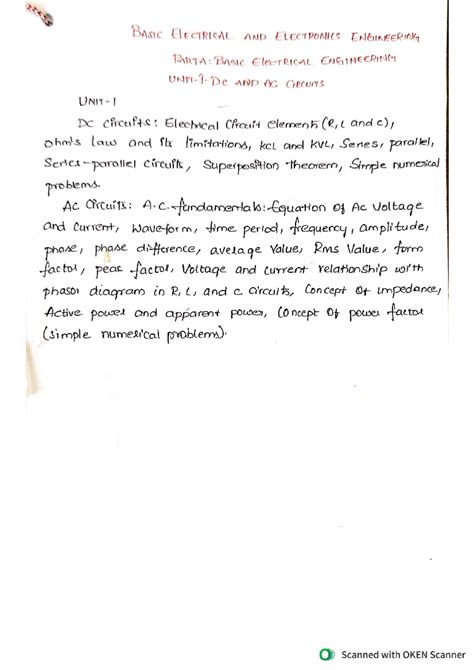 BASIC ELECTRICAL AND ELECTRONICS ENGINEERING
PART A: BASIC ELECTRICAL ENGINEERING
UNIT-I DC AND AC CIRCUITS
UNIT-I
DC circuits: Electrical Circuit elements (R, L and C),
ohms law and its limitations, KCL and KVL, Series, parallel,
Series-parallel circuits, Superposition theorem, Simple numerical
problems.
AC Circuits: A.C. fundamentals: Equation of AC Voltage
and current, waveform, time period, frequency, amplitude,
phase, phase difference, average value, Rms Value, form
factor, peak factor, Voltage and current relationship with
phasor diagram in R, L, and C circuits, Concept of impedance,
Active power and apparent power, Concept of power factor
(simple numerical problems).
Scanned with OKEN Scanner